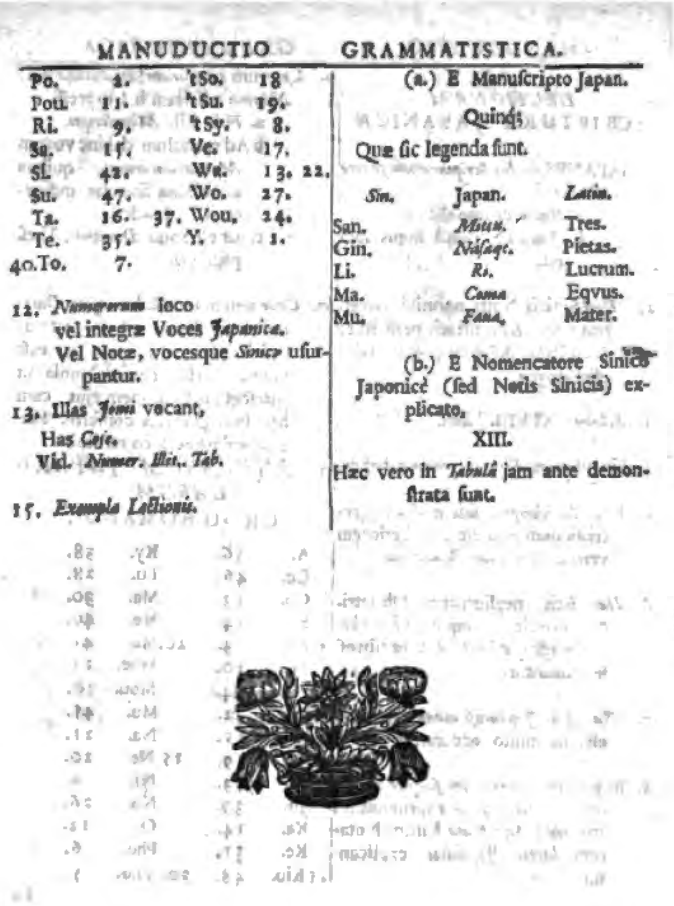 MANUDUCTIO
Po. 2. 'tSo. 18
Pou. 11. 'tSu. 19.
Ri. 9. 'tSy. 8.
Sa. 15. Ve. 17.
Si. 42. Wa. 13. 22.
Su. 47. Wo. 27.
Ta. 16. 37. Wou. 24.
Te. 35. Y. 1.
40. To. 7.
12. Numerorum loco
vel integræ Voces Japanicæ.
Vel Notæ, vocesque Sinicæ uſur-
pantur.
13. Illas Jomi vocant,
Has Coje.
Vid. Numer. Illit. Tab.
15. Exempla Lectionis.
GRAMMATISTICA.
(a.) E Manuſcripto Japan.
Quinqȝ
Quæ ſic legenda ſunt.
Sin. Japan. Latin.
San. Tres.
Gin. Pietas.
Li. Ri. Lucrum.
Ma. Coma Eqvus.
Mu. Faua, Mater.
(b.) E Nomenclatore Sinico
Japonicè (ſed Notis Sinicis) ex-
plicato.
XIII.
Hæc vero in Tabulâ jam ante demon-
ſtrata ſunt.